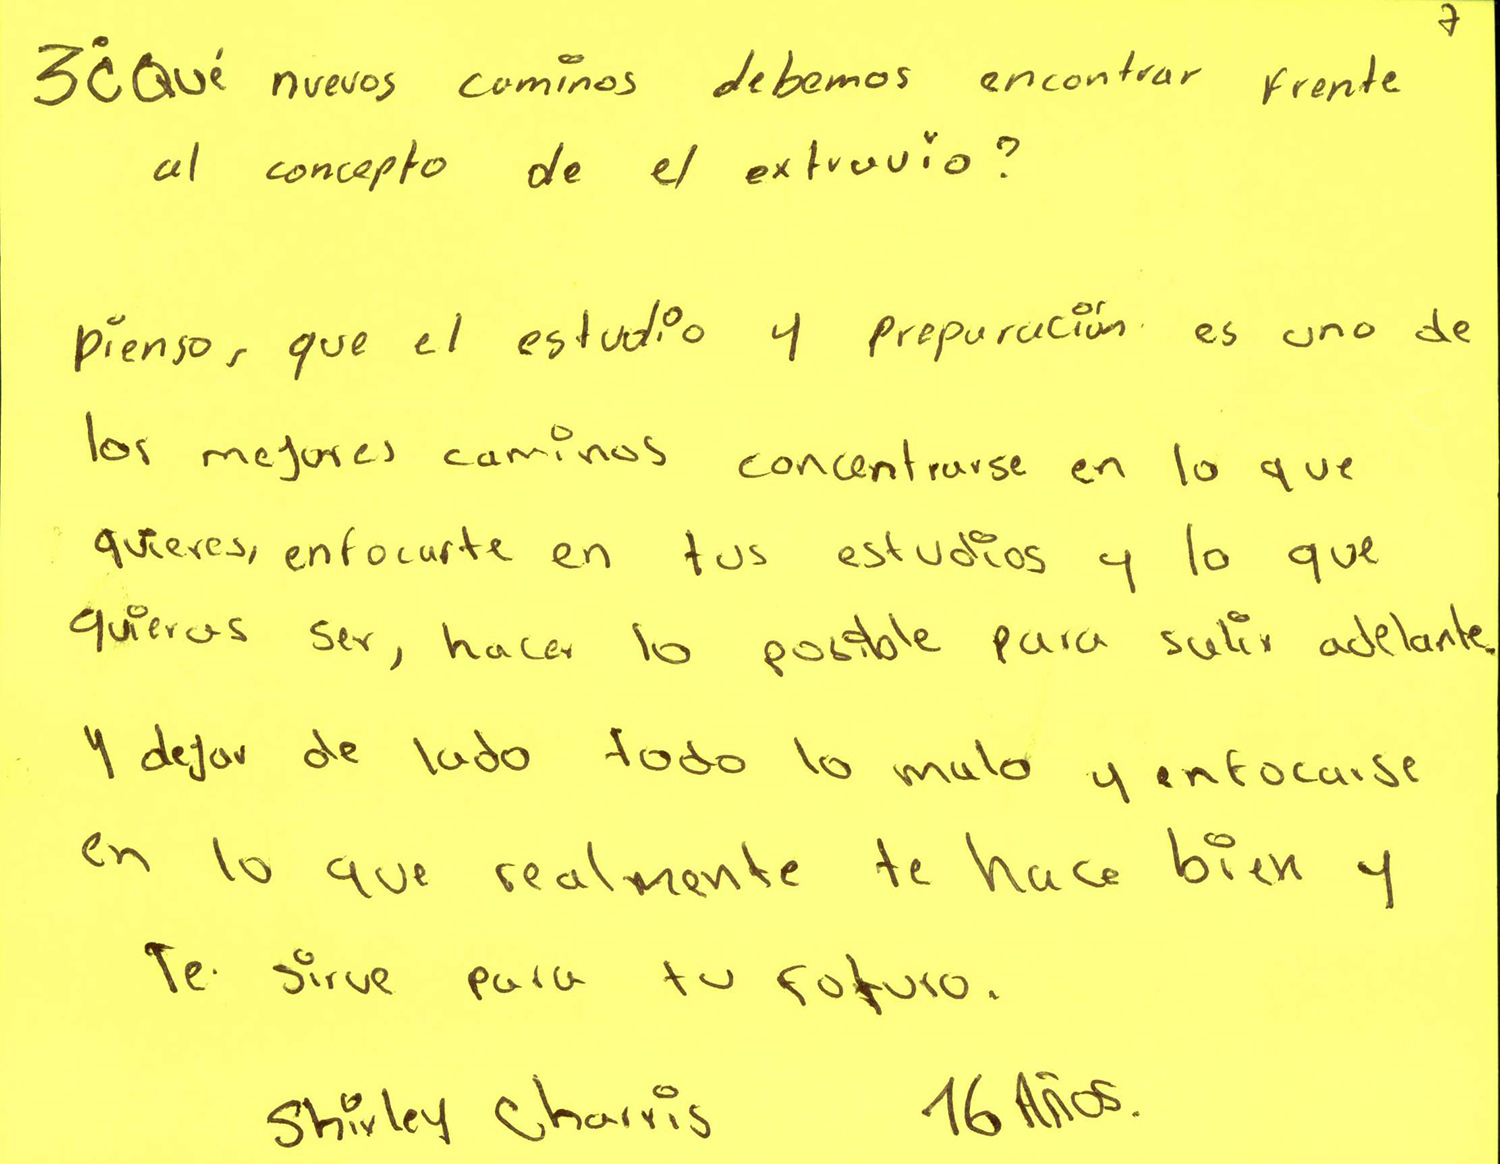 7
3¿Qué nuevos caminos debemos encontrar frente
al concepto de el extravio?
pienso, que el estudio y preparación es uno de
los mejores caminos concentrarse en lo que
quieres, enfocarte en tus estudios y lo que
quieras ser, hacer lo posible para salir adelante.
Y dejar de lado todo lo malo y enfocarse
en lo que realmente te hace bien y
Te sirve para tu futuro.
Shirley Charris 16 Años.